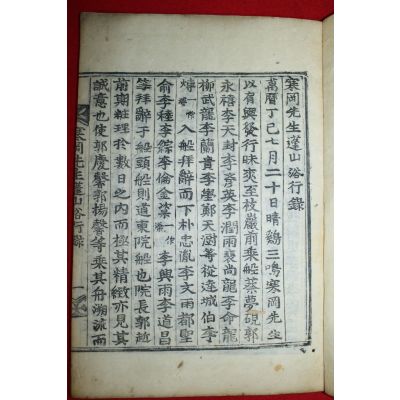 寒岡先生蓬山浴行錄
萬曆丁巳七月二十日晴鷄三鳴寒岡先生
以有輿發行昧爽至枝巖前乘船蔡夢硯郭
永禧李天封李彥英李潤雨裴尚龍李命龍
柳武龍李蘭貴李學鄭天澍等從達城伯李
慱一作入船拜辭而下朴忠胤李文雨都聖
俞李種李綜李倫金一作李興雨李道昌
等拜辭于船頭船則道東院船也院長郭赾
前期粧理於數日之内而極其精緻亦見其
誠意也使郭慶馨郭揚馨等乘其舟溯流而
寒岡先生蓬山浴行錄 一